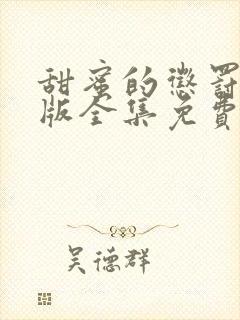 甜蜜的懲罰
版全集免費
吴德群